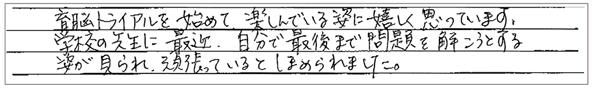 育脳トライアルを始めて、楽しんでいる姿に嬉しく思っています。
学校の先生に最近、自分で最後まで問題を解こうとする
姿が見られ、頑張っているとほめられました。